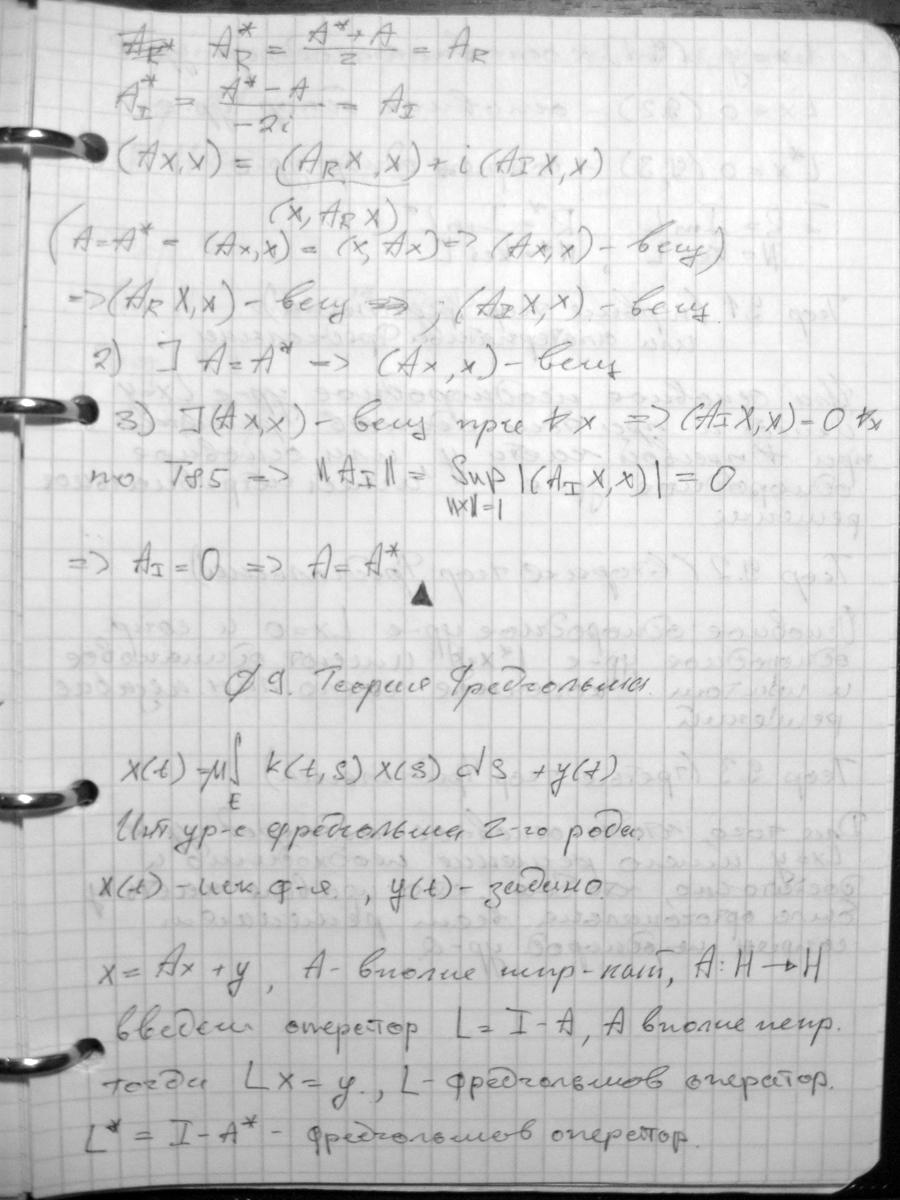 A_R^* = (A^* + A)/2 = A_R
A_I^* = (A^* - A)/(-2i) = A_I
(Ax,x) = (A_R x, x) + i (A_I x, x)
(x, A_R x)
(A = A^* - (Ax,x) = (x, Ax) => (Ax,x) - вещ)
=> (A_R x, x) - вещ ; (A_I x, x) - вещ
2) ] A = A^* -> (Ax, x) - вещ
3) ] (Ax,x) - вещ при ∀ x => (A_I x, x) = 0 ∀x
по Т8.5 => ||A_I|| = Sup |(A_I x, x)| = 0
||x||=1
=> A_I = 0 => A = A^*
▲
§ 9. Теория Фредгольма.
x(t) = μ∫ k(t,s) x(s) ds + y(t)
E
Инт ур-е фредгольма 2-го рода.
x(t) - иск ф-я, y(t) - задано.
x = Ax + y, A - вполне непр-, A: H → H
введем оператор L = I - A, A вполне непр.
тогда Lx = y., L - фредгольмов оператор.
L^* = I - A^* - фредгольмов оператор.